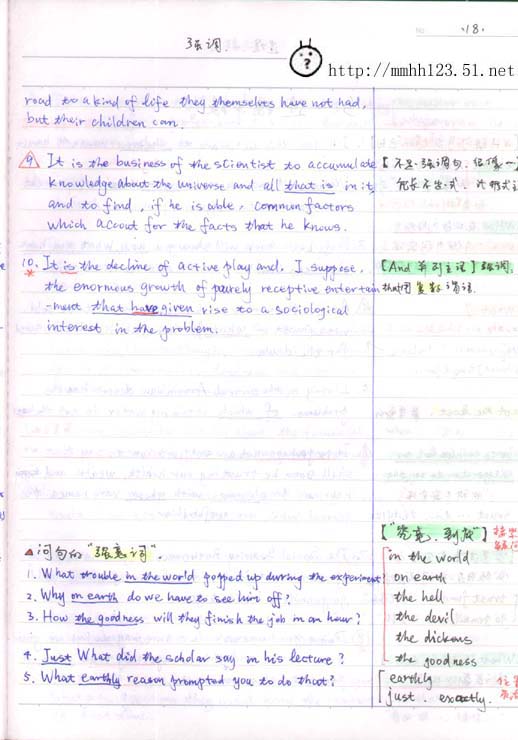 No. 18.
强调.
http://mmhh123.51.net
road to a kind of life they themselves have not had,
but their children can.
9. It is the business of the scientist to accumulate
knowledge about the universe and all that is in it,
and to find, if he is able, common factors
which accout for the facts that he knows.
【不是强调句.
10. It is the decline of active play and, I suppose,
the enormous growth of purely receptive entertain
-ment that have given rise to a sociological
interest in the problem.
【And 并列主语】强调,
that用复数谓语.
▲问句的"强意词".
1. What trouble in the world popped up during the experiment?
2. Why on earth do we have to see him off?
3. How the goodness will they finish the job in an hour?
4. Just What did the scholar say in his lecture?
5. What earthly reason prompted you to do that?
【"究竟, 到底"】
in the world
on earth
the hell
the devil
the dickens
the goodness
earthly
just . exactly.